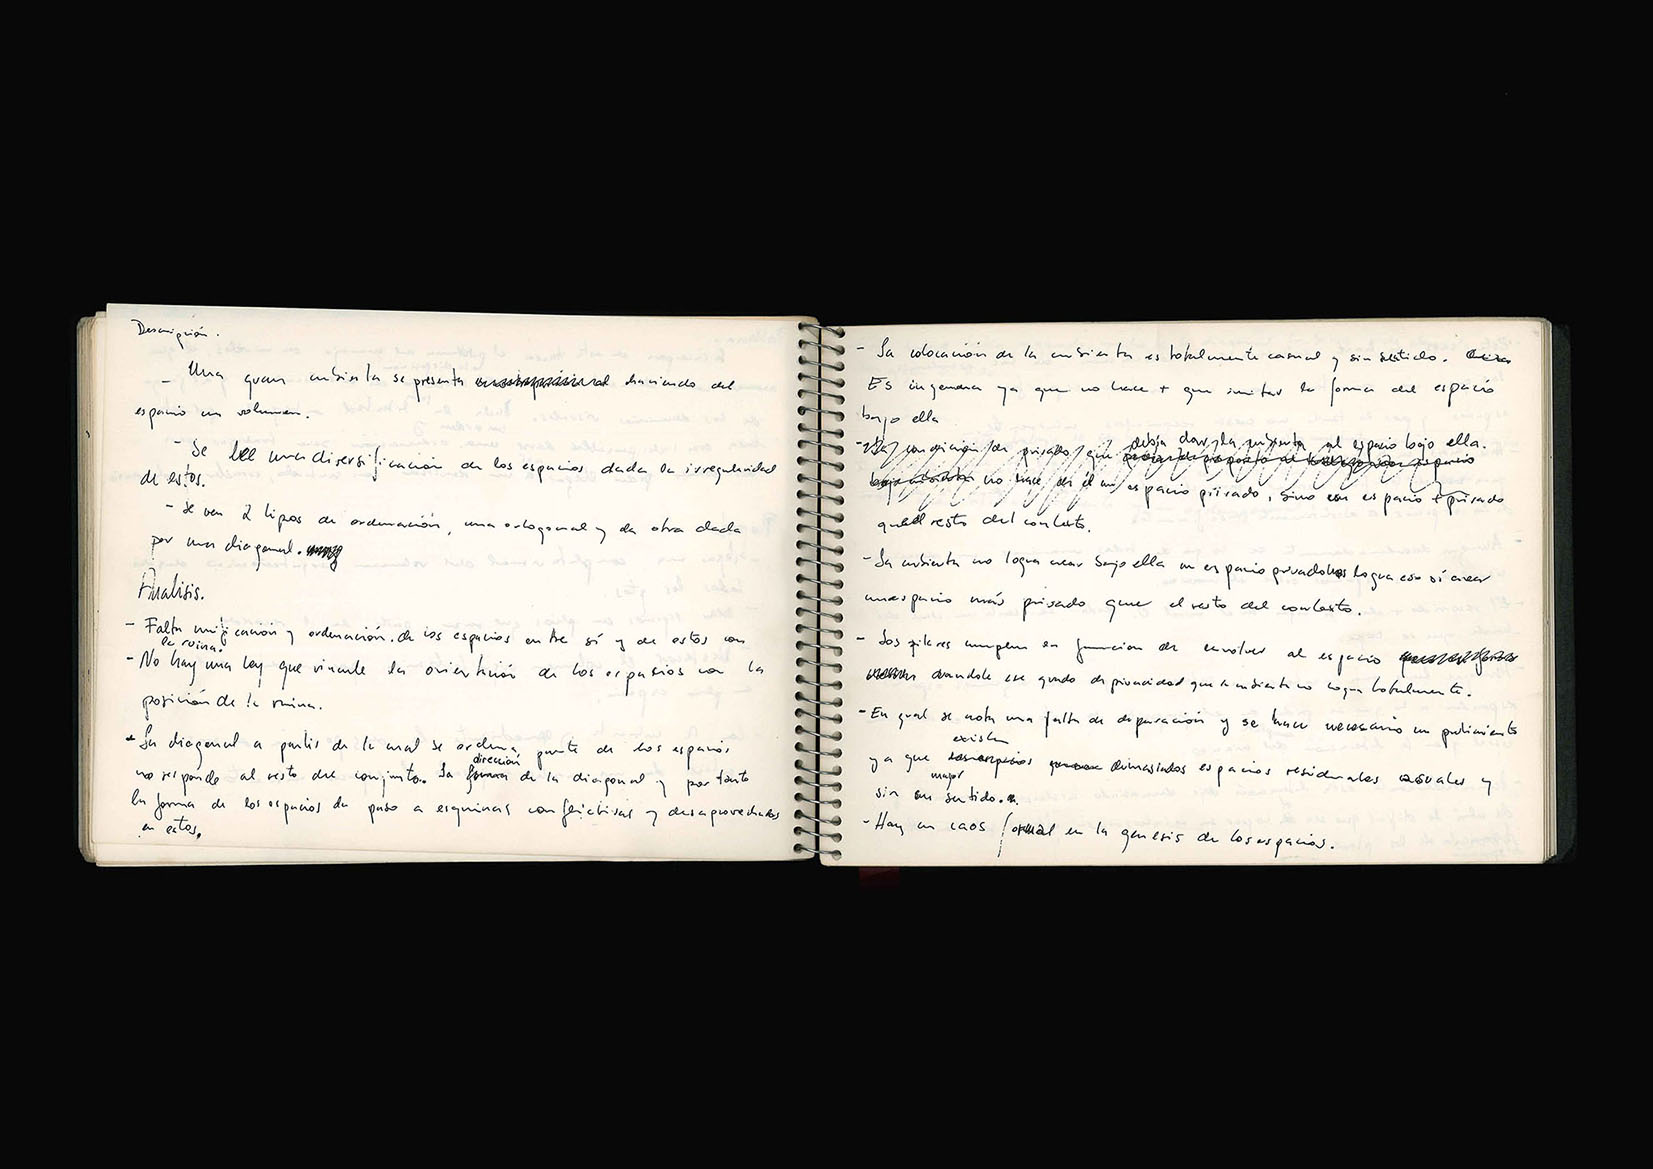 Descripción.
- Una gran cubierta se presenta haciendo del
espacio un volumen.
- Se lee una diversificación de los espacios dada la irregularidad
de estos.
- Se ven 2 tipos de ordenación, una ortogonal y la otra dada
por una diagonal.
Analisis.
- Falta unificación y ordenación de los espacios entre sí y de estos con
la ruina.
- No hay una ley que vincule la orientación de los espacios con la
posición de la ruina.
- La diagonal a partir de la cual se ordena parte de los espacios
no responde al resto del conjunto. La dirección de la diagonal y por tanto
la forma de los espacios da paso a esquinas conflictivas y desaprovechadas
en estos.
- La colocación de la cubierta es totalmente casual y sin sentido.
Es ingenua ya que no hace + que imitar la forma del espacio
bajo ella
- La condición de privado que debía dar la cubierta al espacio bajo ella.
no hace de él un espacio privado, sino un espacio + privado
que el resto del contexto.
- La cubierta no logra crear bajo ella un espacio privado logra eso sí crear
un espacio más privado que el resto del contexto.
- Los pilares cumplen su función de envolver al espacio
dandole ese grado de privacidad que la cubierta no logra totalmente.
- En gral se nota una falta de depuración y se hace necesario un pulimiento
ya que existen demasiados espacios residuales casuales y
sin mayor sentido.
- Hay un caos formal en la genesis de los espacios.